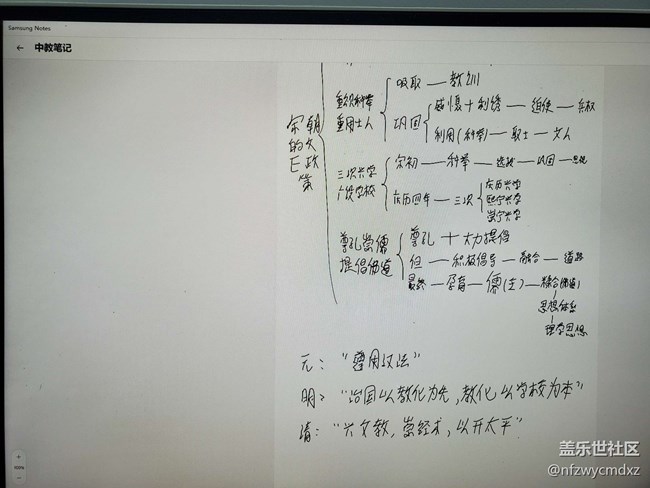 Samsung Notes
中教笔记
宋朝的文E政策
重视科举
重用士人
吸取 — 教训
巩固
威慑+利诱 — 迫使 — 兵权
利用(科举) — 取士 — 文人
三次兴学
广设学校
宋初 — 科举 — 选拔 — 巩固 —
庆历四年 — 三次
庆历兴学
熙宁兴学
崇宁兴学
尊孔崇儒
提倡佛道
尊孔 + 大力提倡
但 — 积极倡导 — 融合 — 道路
最终 — 孕育 — 儒(主) — 糅合(佛道)
思想体系
理学思想
元："尊用汉法"
明："治国以教化为先,教化以学校为本"
清："兴文教,崇经术,以开太平"
100%
盖乐世社区
@nfzwycmdxz